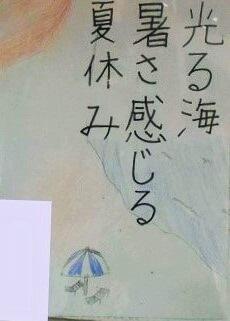 光る海
暑さ感じる
夏休み